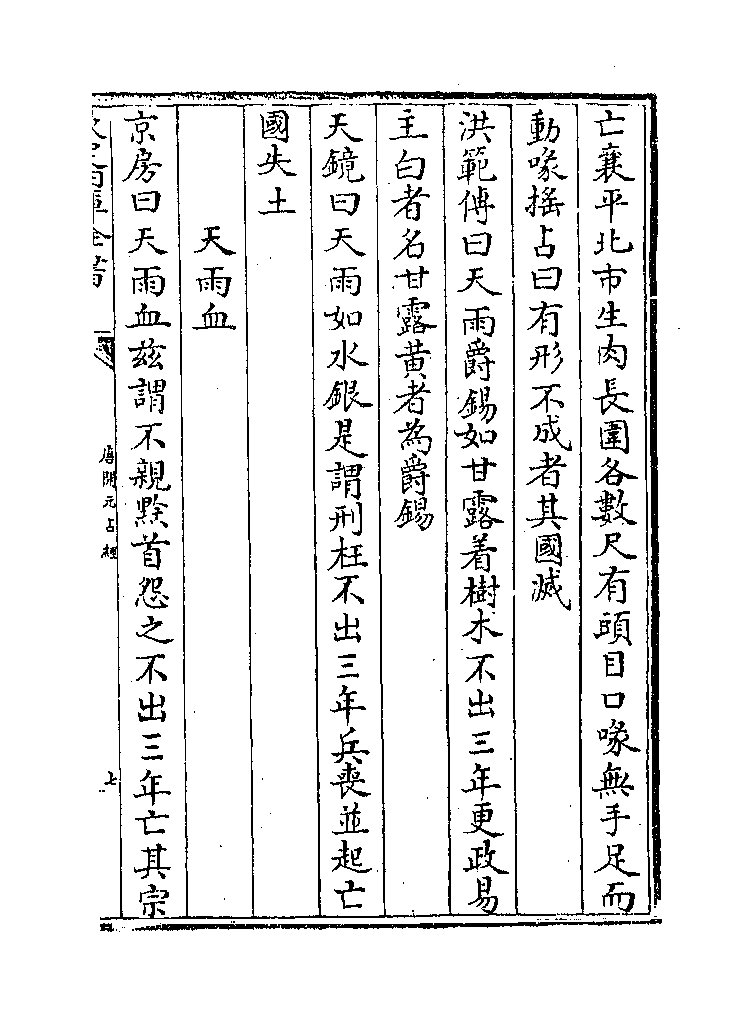 亡襄平北市生肉長圍各數尺有頭目口喙無手足而
動喙揺占曰有形不成者其國滅
洪範傅曰天雨爵錫如甘露着樹木不出三年更政易
主白者名甘露黄者為爵錫
天鏡曰天雨如水銀是謂刑枉不出三年兵喪並起亡
國失土
天雨血
京房曰天雨血兹謂不親黔首怨之不出三年亡其宗
唐開元占經
七